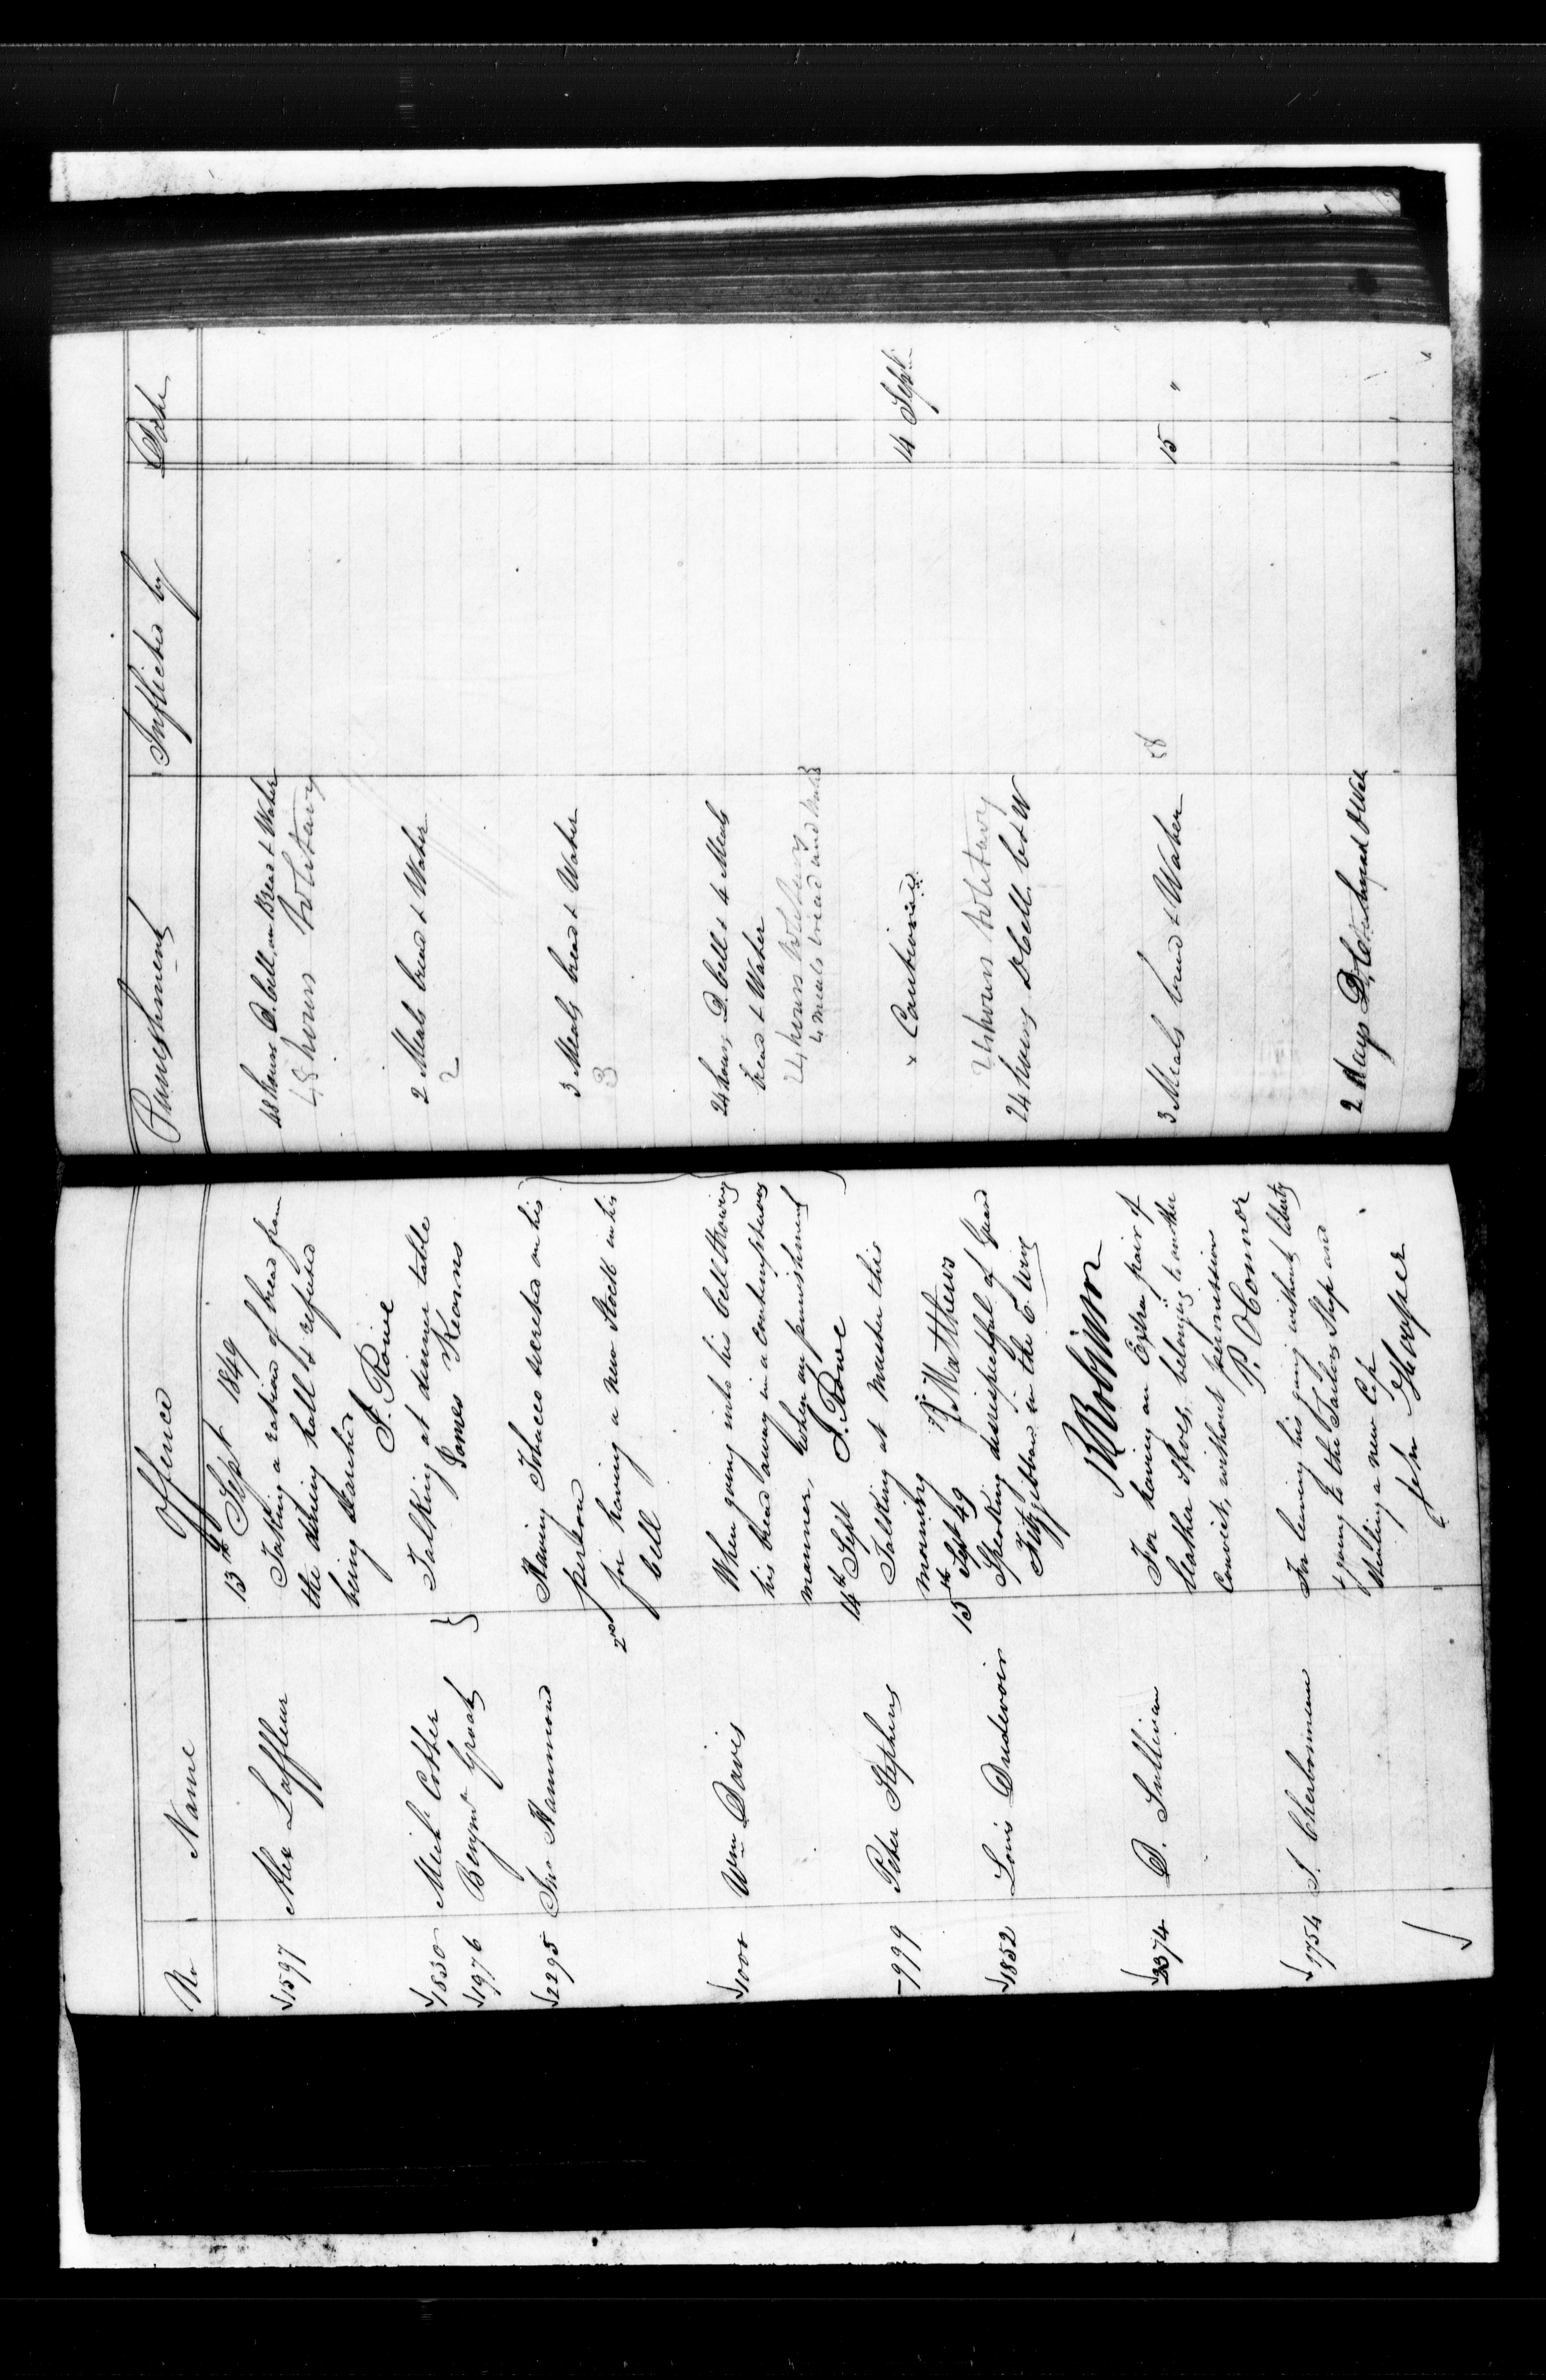 No Name Offence Punishment Inflicted by Date
13th Sept 1849
1597 Alex Laffleur Taking a ration of bread from 48 hours D. Cell on Bread & Water
the dining hall & refused 48 hours Solitary
being searched
J. Rowe
1830 Mich Cotter } Talking at dinner table 2 Meals bread & Water
1976 Benjmn Groat James Kearns 2
2295 Jno Hammond Having Tobacco secreted on his 3 Meals bread & Water
person 3
2nd for having a new Stock in his
Cell
1000 Wm Davis When going into his Cell throwing 24 hours D. Cell & 4 Meals
his bread away in a contemptuous bread & Water
manner, when on punishment 24 hours Solitary
4 meals bread and water
14th Sept J. Rowe
999 Peter Stephens Talking at Master this x Cautioned 14 Sept
morning R Matthews
15th Sept 49
1852 Louis Dudevoir Speaking disrespectful of Guard 24 hours Solitary
Fitzgibbon in the E. Wing 24 hours D Cell. b & W
R Robinson
2374 D. Sullivan For having an Extra pair of 3 Meals bread & Water 15 "
leather Shoes, belonging to another
Convict, without permission
P. O Connor
1754 J. Cherbonneau For leaving his gang without liberty 2 days D,C
& going to the Tailors Shop and
stealing a new Cap
John Hooper